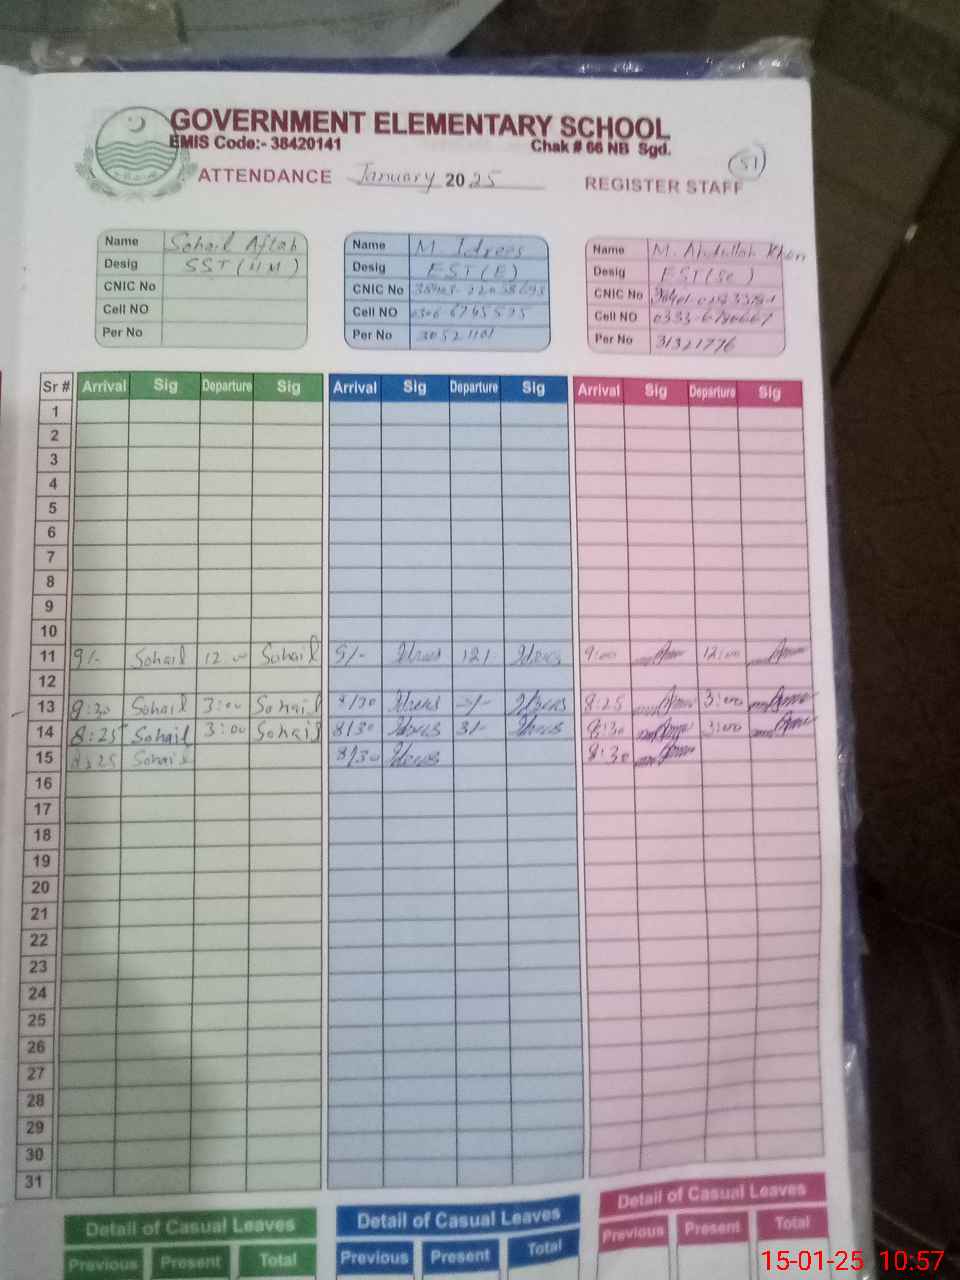 GOVERNMENT ELEMENTARY SCHOOL
EMIS Code:- 38420141 Chak # 66 NB Sgd.
51
ATTENDANCE January 2025 REGISTER STAFF
Name Sohail Aftab Name M Idrees Name M. Abdullah Khan
Desig SST (HM) Desig EST (E) Desig EST (Sc)
CNIC No CNIC No CNIC No
Cell NO Cell NO Cell NO
Per No Per No 30521101 Per No 31321776
Sr # Arrival Sig Departure Sig Arrival Sig Departure Sig Arrival Sig Departure Sig
1
2
3
4
5
6
7
8
9
10
11 9/- Sohail 12:00 Sohail 9/- Idrees 12/- Idrees 9:00 12:00
12
13 Sohail 3:00 Sohail 8/30 Idrees 3/- Idrees 8:25 3:00
14 8:25 Sohail 3:00 Sohail 8/30 Idrees 3/- Idrees 3:00
15 8:25 Sohail 8/30 Idrees 8:30
16
17
18
19
20
21
22
23
24
25
26
27
28
29
30
31
Detail of Casual Leaves Detail of Casual Leaves Detail of Casual Leaves
Previous Present Total Previous Present Total Previous Present Total
15-01-25 10:57